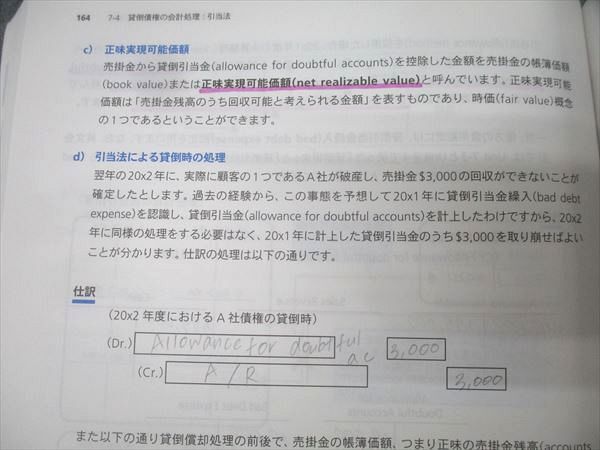 164 7-4 貸倒債権の会計処理：引当法
c) 正味実現可能価額
売掛金から貸倒引当金(allowance for doubtful accounts)を控除した金額を売掛金の帳簿価額
(book value)または正味実現可能価額(net realizable value)と呼んでいます。正味実現可
能価額は「売掛金残高のうち回収可能と考えられる金額」を表すものであり、時価(fair value)概念
の１つであるということができます。
d) 引当法による貸倒時の処理
翌年の20x2年に、実際に顧客の１つであるA社が破産し、売掛金$3,000の回収ができないことが
確定したとします。過去の経験から、この事態を予想して20x1年に貸倒引当金繰入(bad debt
expense)を認識し、貸倒引当金(allowance for doubtful accounts)を計上したわけですから、20x2
年に同様の処理をする必要はなく、20x1年に計上した貸倒引当金のうち$3,000を取り崩せばよい
ことが分かります。仕訳の処理は以下の通りです。
仕訳
(20x2年度におけるA社債権の貸倒時)
(Dr.) Allowance for doubtful ac 3,000
(Cr.) A/R 3,000
また以下の通り貸倒償却処理の前後で、売掛金の帳簿価額、つまり正味の売掛金残高(accounts